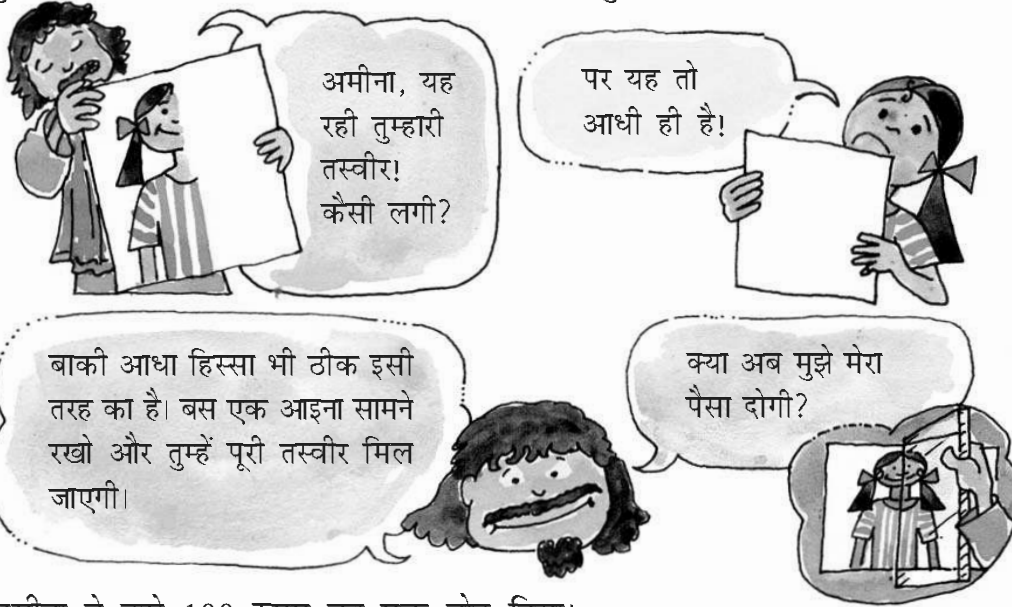 अमीना, यह
रही तुम्हारी
तस्वीर!
कैसी लगी?
पर यह तो
आधी ही है!
बाकी आधा हिस्सा भी ठीक इसी
तरह का है। बस एक आइना सामने
रखो और तुम्हें पूरी तस्वीर मिल
जाएगी।
क्या अब मुझे मेरा
पैसा दोगी?